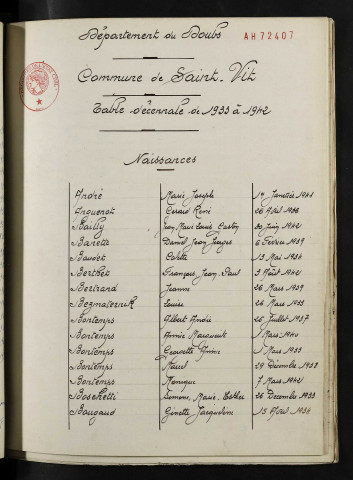 Département du Doubs
AH72407
Commune de Saint-Vit
Table décennale de 1933 à 1942
Naissances
André Marie Joseph 14 Janvier 1941
Arguenot Gérard René
Bailly Jean Marie Louis Gaston 30 Juin 1942
Barette Daniel Jean Georges 6 Février 1939
Baudet Colette 13 Mai 1934
Berthet François Jean Paul 3 Août 1942
Bertrand Jeanne 26 Mars 1939
Louise 26 Mars 1933
Bontemps Albert André 25 Juillet 1937
Bontemps Annie Marguerite Mars 1940
Bontemps Georgette Anne Mars 1933
Bontemps Marcel 29 Décembre 1933
Bontemps Monique 7 Mars 1942
Boschetti Simone Marie Esther 26 Décembre 1933
Bougaud Ginette Jacqueline 15 Avril 1934